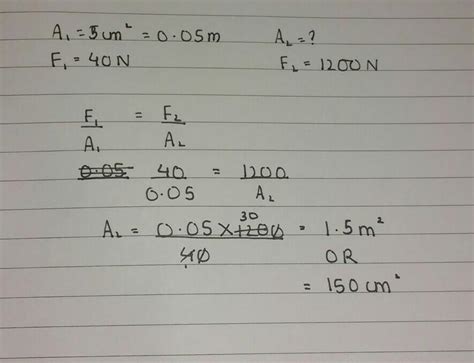 A₁ = 5cm² = 0.05m A₂ = ?
F₁ = 40N F₂ = 1200N
F₁/A₁ = F₂/A₂
0.05 40/0.05 = 1200/A₂
A₂ = 0.05 × 1200 30/40 = 1.5m²
OR
= 150cm²